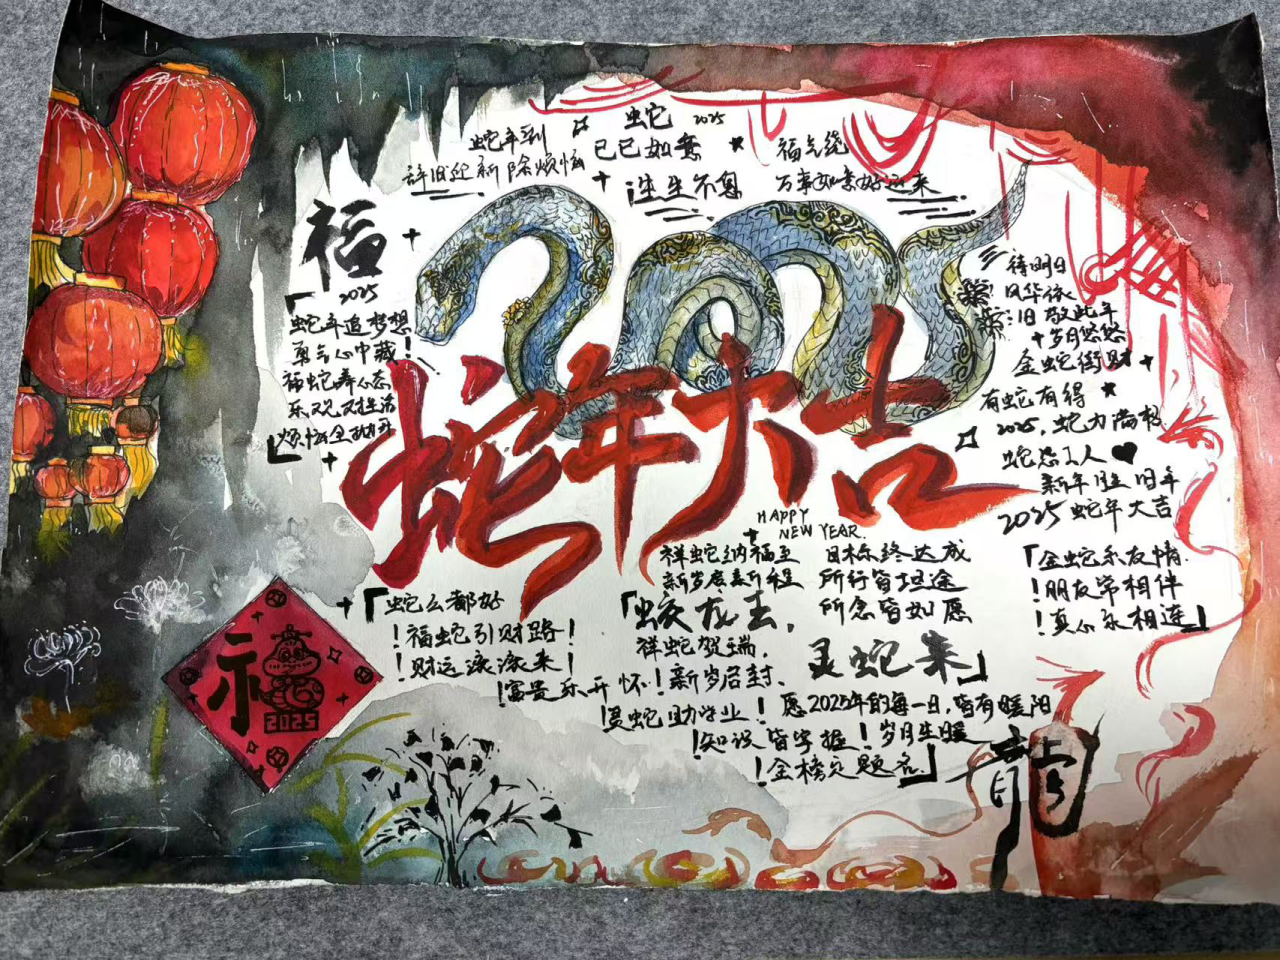 蛇 2025
蛇年到
辞旧迎新除烦恼
巳巳如意
生生不息
福气绕
万事如意好运来
福
2025
蛇年追梦想
勇气心中藏!
福蛇舞心态
乐观对生活
烦恼全抛开
待明日
风华依旧
敬此年
岁月悠悠
金蛇衔财
有蛇有得
2025,蛇力满
新年胜旧年
2025蛇年大吉
蛇年大吉
HAPPY
NEW YEAR.
祥蛇纳福至
新岁启新程
目标终达成
所行皆坦途
所念皆如愿
「蛟龙去,
灵蛇来」
祥蛇贺瑞,
新岁启封、
愿2025年的每一日,皆有暖阳
岁月生暖
「金蛇系友情.
!朋友常相伴
!真心永相连」
「蛇么都好
!福蛇引财路!
!财运滚滚来!
!富贵乐开怀!
!灵蛇助学业!
!知识皆掌握!
!金榜定题名.」
2025